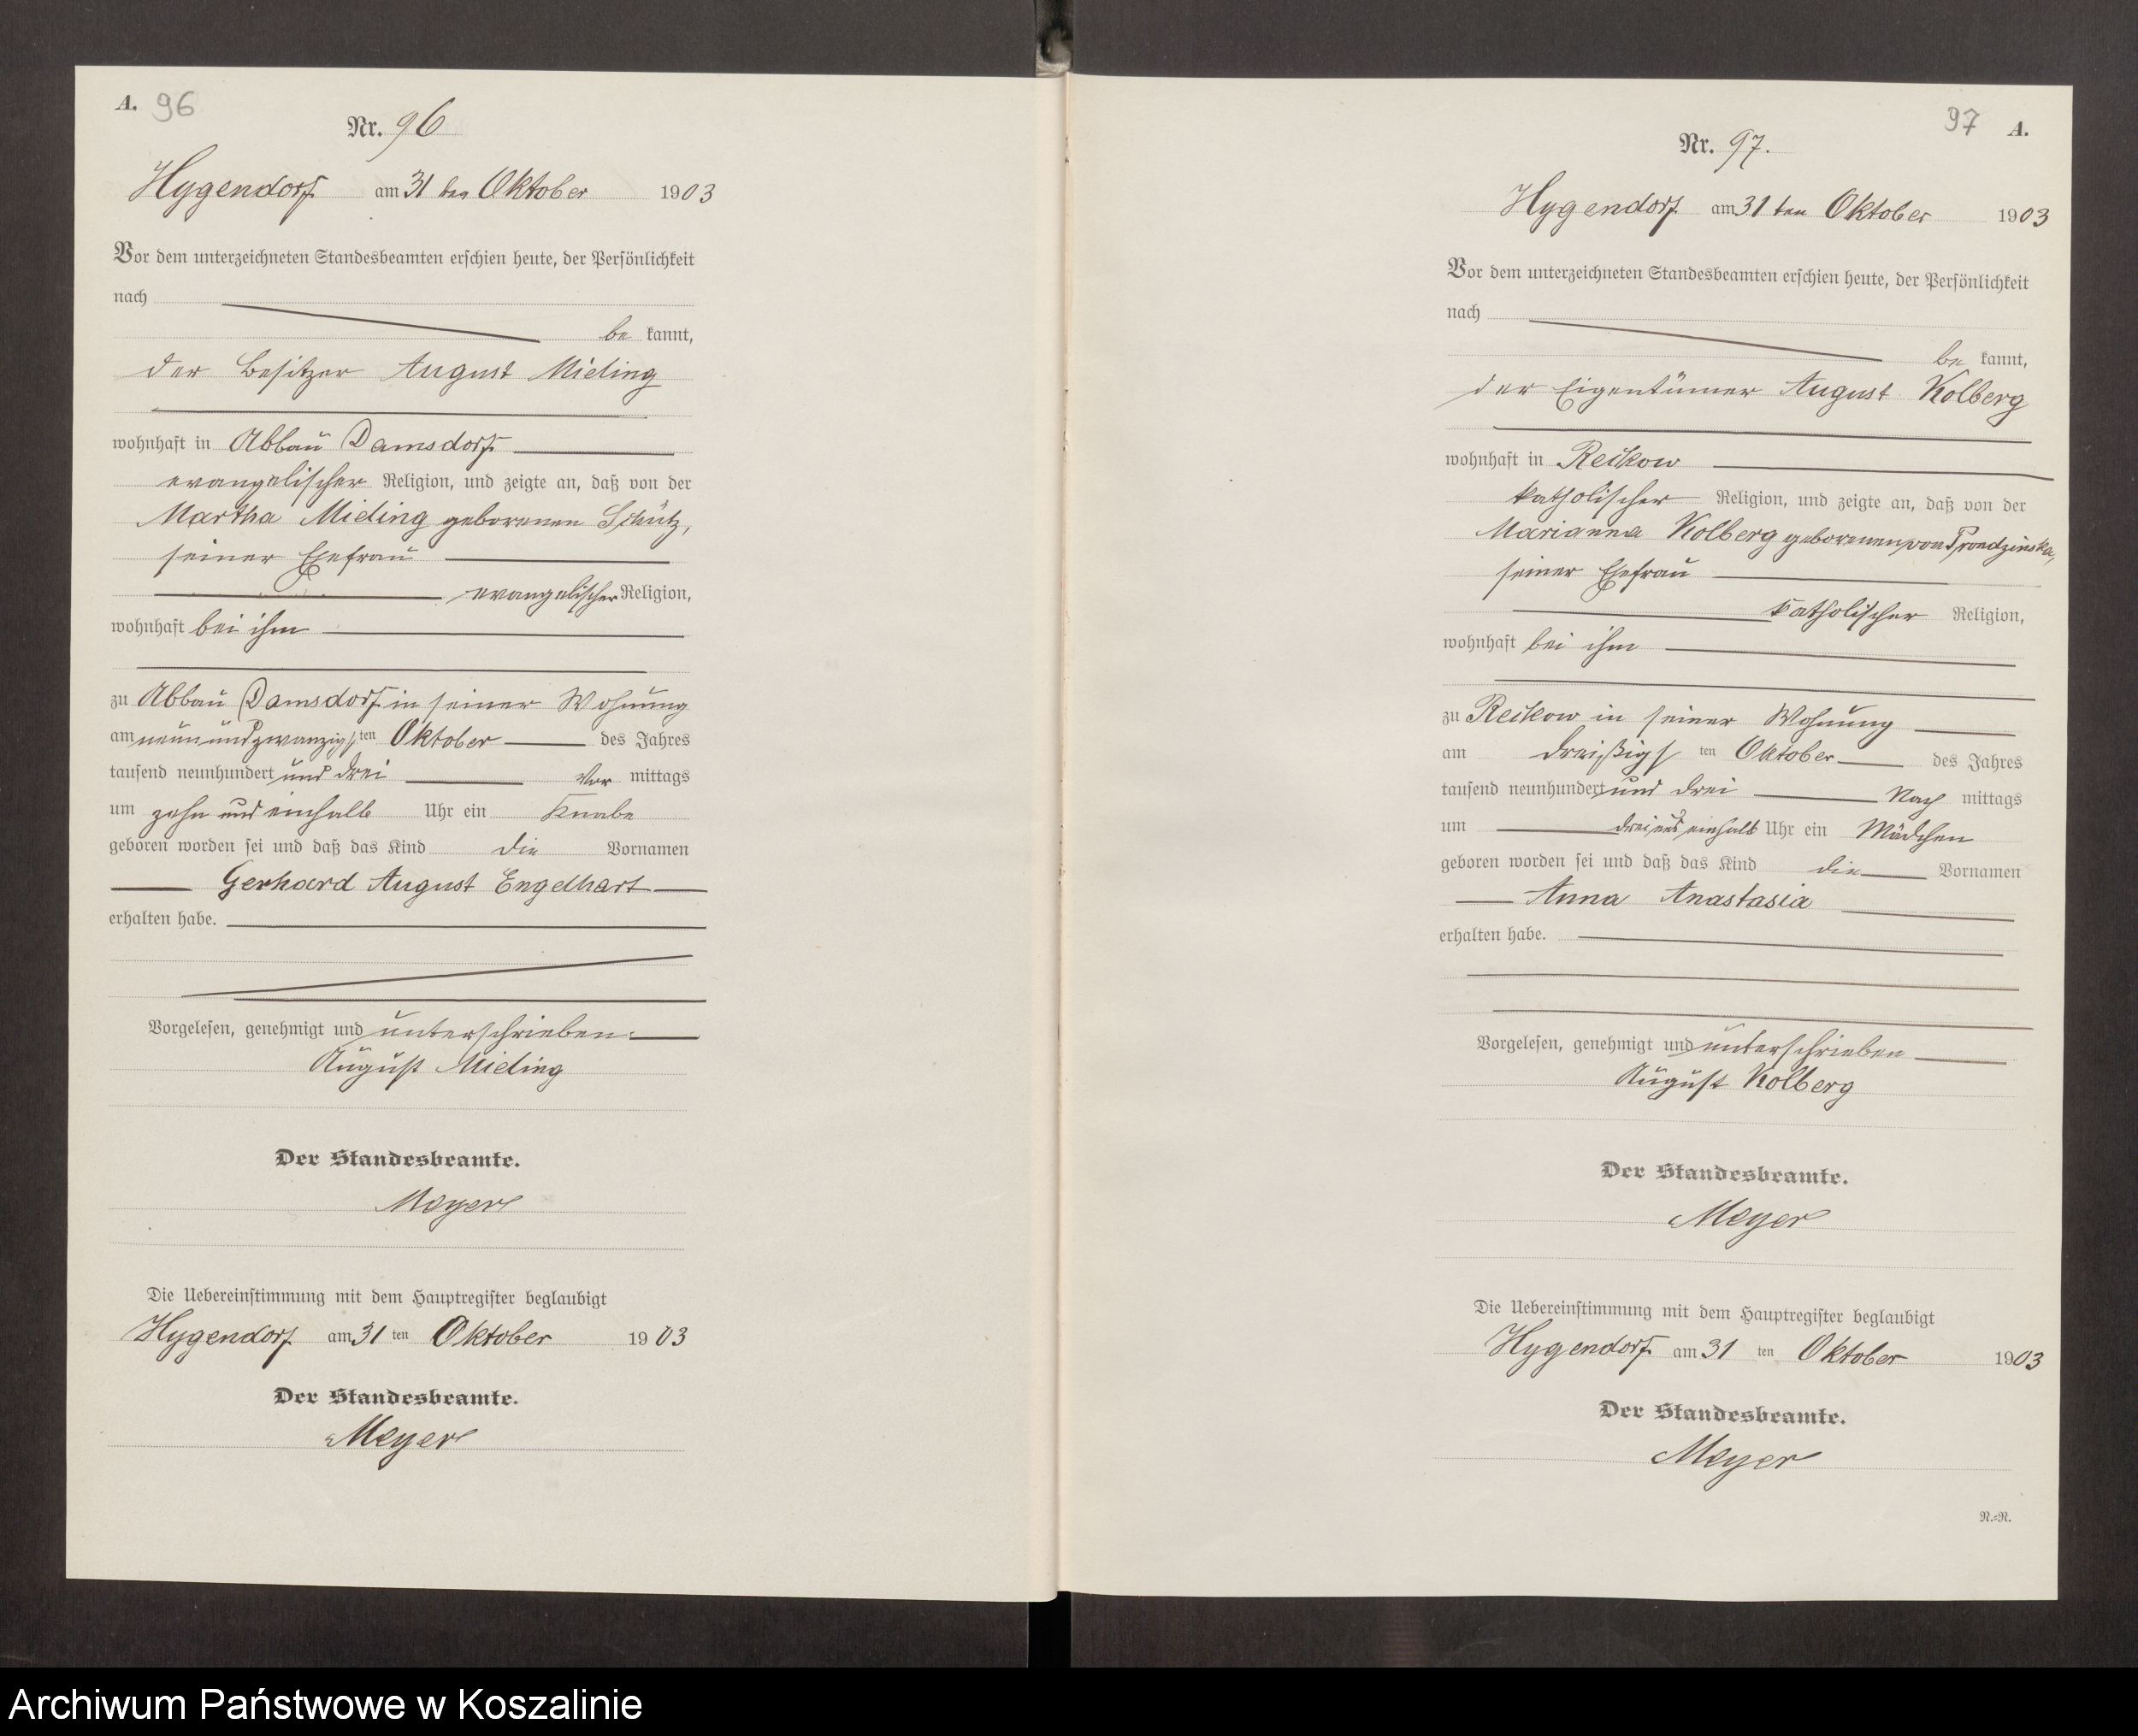 A. 96
Nr. 96
Hygendorf am 31 ten Oktober 1903
Vor dem unterzeichneten Standesbeamten erschien heute, der Persönlichkeit
nach
be kannt,
der Besitzer August Mieling
wohnhaft in Abbau Damsdorf
evangelischer Religion, und zeigte an, daß von der
Martha Mieling geborenen Schütz,
seiner Ehefrau
evangelischer Religion,
wohnhaft bei ihm
zu Abbau Damsdorf in seiner Wohnung
am neunundzwanzigsten Oktober des Jahres
tausend neunhundert und drei Vor mittags
um zehn und einhalb Uhr ein Knabe
geboren worden sei und daß das Kind die Vornamen
Gerhard August Engelhart
erhalten habe.
Vorgelesen, genehmigt und unterschrieben.
August Mieling
Der Standesbeamte.
Meyer
Die Uebereinstimmung mit dem Hauptregister beglaubigt
Hygendorf am 31 ten Oktober 1903
Der Standesbeamte.
Meyer
97 A.
Nr. 97.
Hygendorf am 31 ten Oktober 1903
Vor dem unterzeichneten Standesbeamten erschien heute, der Persönlichkeit
nach
be kannt,
der Eigentümer August Kolberg
wohnhaft in Reckow
katholischer Religion, und zeigte an, daß von der
Marianna Kolberg geborenen von Prondzinska,
seiner Ehefrau
katholischer Religion,
wohnhaft bei ihm
zu Reckow in seiner Wohnung
am dreißigsten Oktober des Jahres
tausend neunhundert und drei Nach mittags
um drei und einhalb Uhr ein Mädchen
geboren worden sei und daß das Kind die Vornamen
Anna Anastasia
erhalten habe.
Vorgelesen, genehmigt und unterschrieben
August Kolberg
Der Standesbeamte.
Meyer
Die Uebereinstimmung mit dem Hauptregister beglaubigt
Hygendorf am 31 ten Oktober 1903
Der Standesbeamte.
Meyer
N.=N.
Archiwum Państwowe w Koszalinie